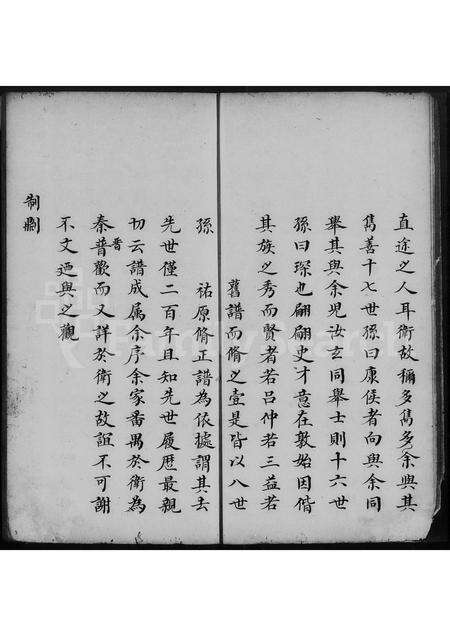 直途之人耳衛故稱多雋多余與其
雋善十七世孫曰康侯者向與余同
舉其與余兒汝玄同舉士則十六世
孫曰琛也翩翩史才意在敦始因偕
其族之秀而賢者若呂仲若三益若
舊譜而脩之壹是皆以八世
孫 祐原脩正譜為依據謂其去
先世僅二百年且知先世履歷最親
切云譜成属余序余家番禺於衛為
秦晉歡而又詳於衛之故誼不可謝
不文迺與之觀
制劂
FamilySearch